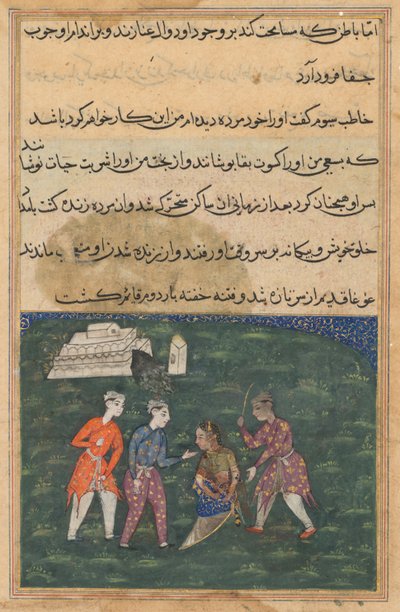 امّا باطن که مسامحت کند بر وجود او دوال عنا زند و بر اندام او چوب
جفا فرود آرد
خاطب سیوم گفت او را خود مرده دیده‌ام من این کار خواهم کرد باشد
که بسعی من او را کسوت بقا پوشانند و از بخت من او را شربت حیات نوشانند
بس او همچنان کرد بعد از زمانی ان ساکن متحرک شد و ان مرده زنده گشت
خلق خویش و بیکانه بر سر وقت او رفتند و از زنده شدن او ماندند
غوغا قدیم از سر تازه شد و فتنه خفته بار دوم قائم گشت